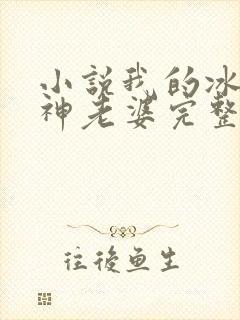 小説我的冰
神老婆完整
往後鱼生